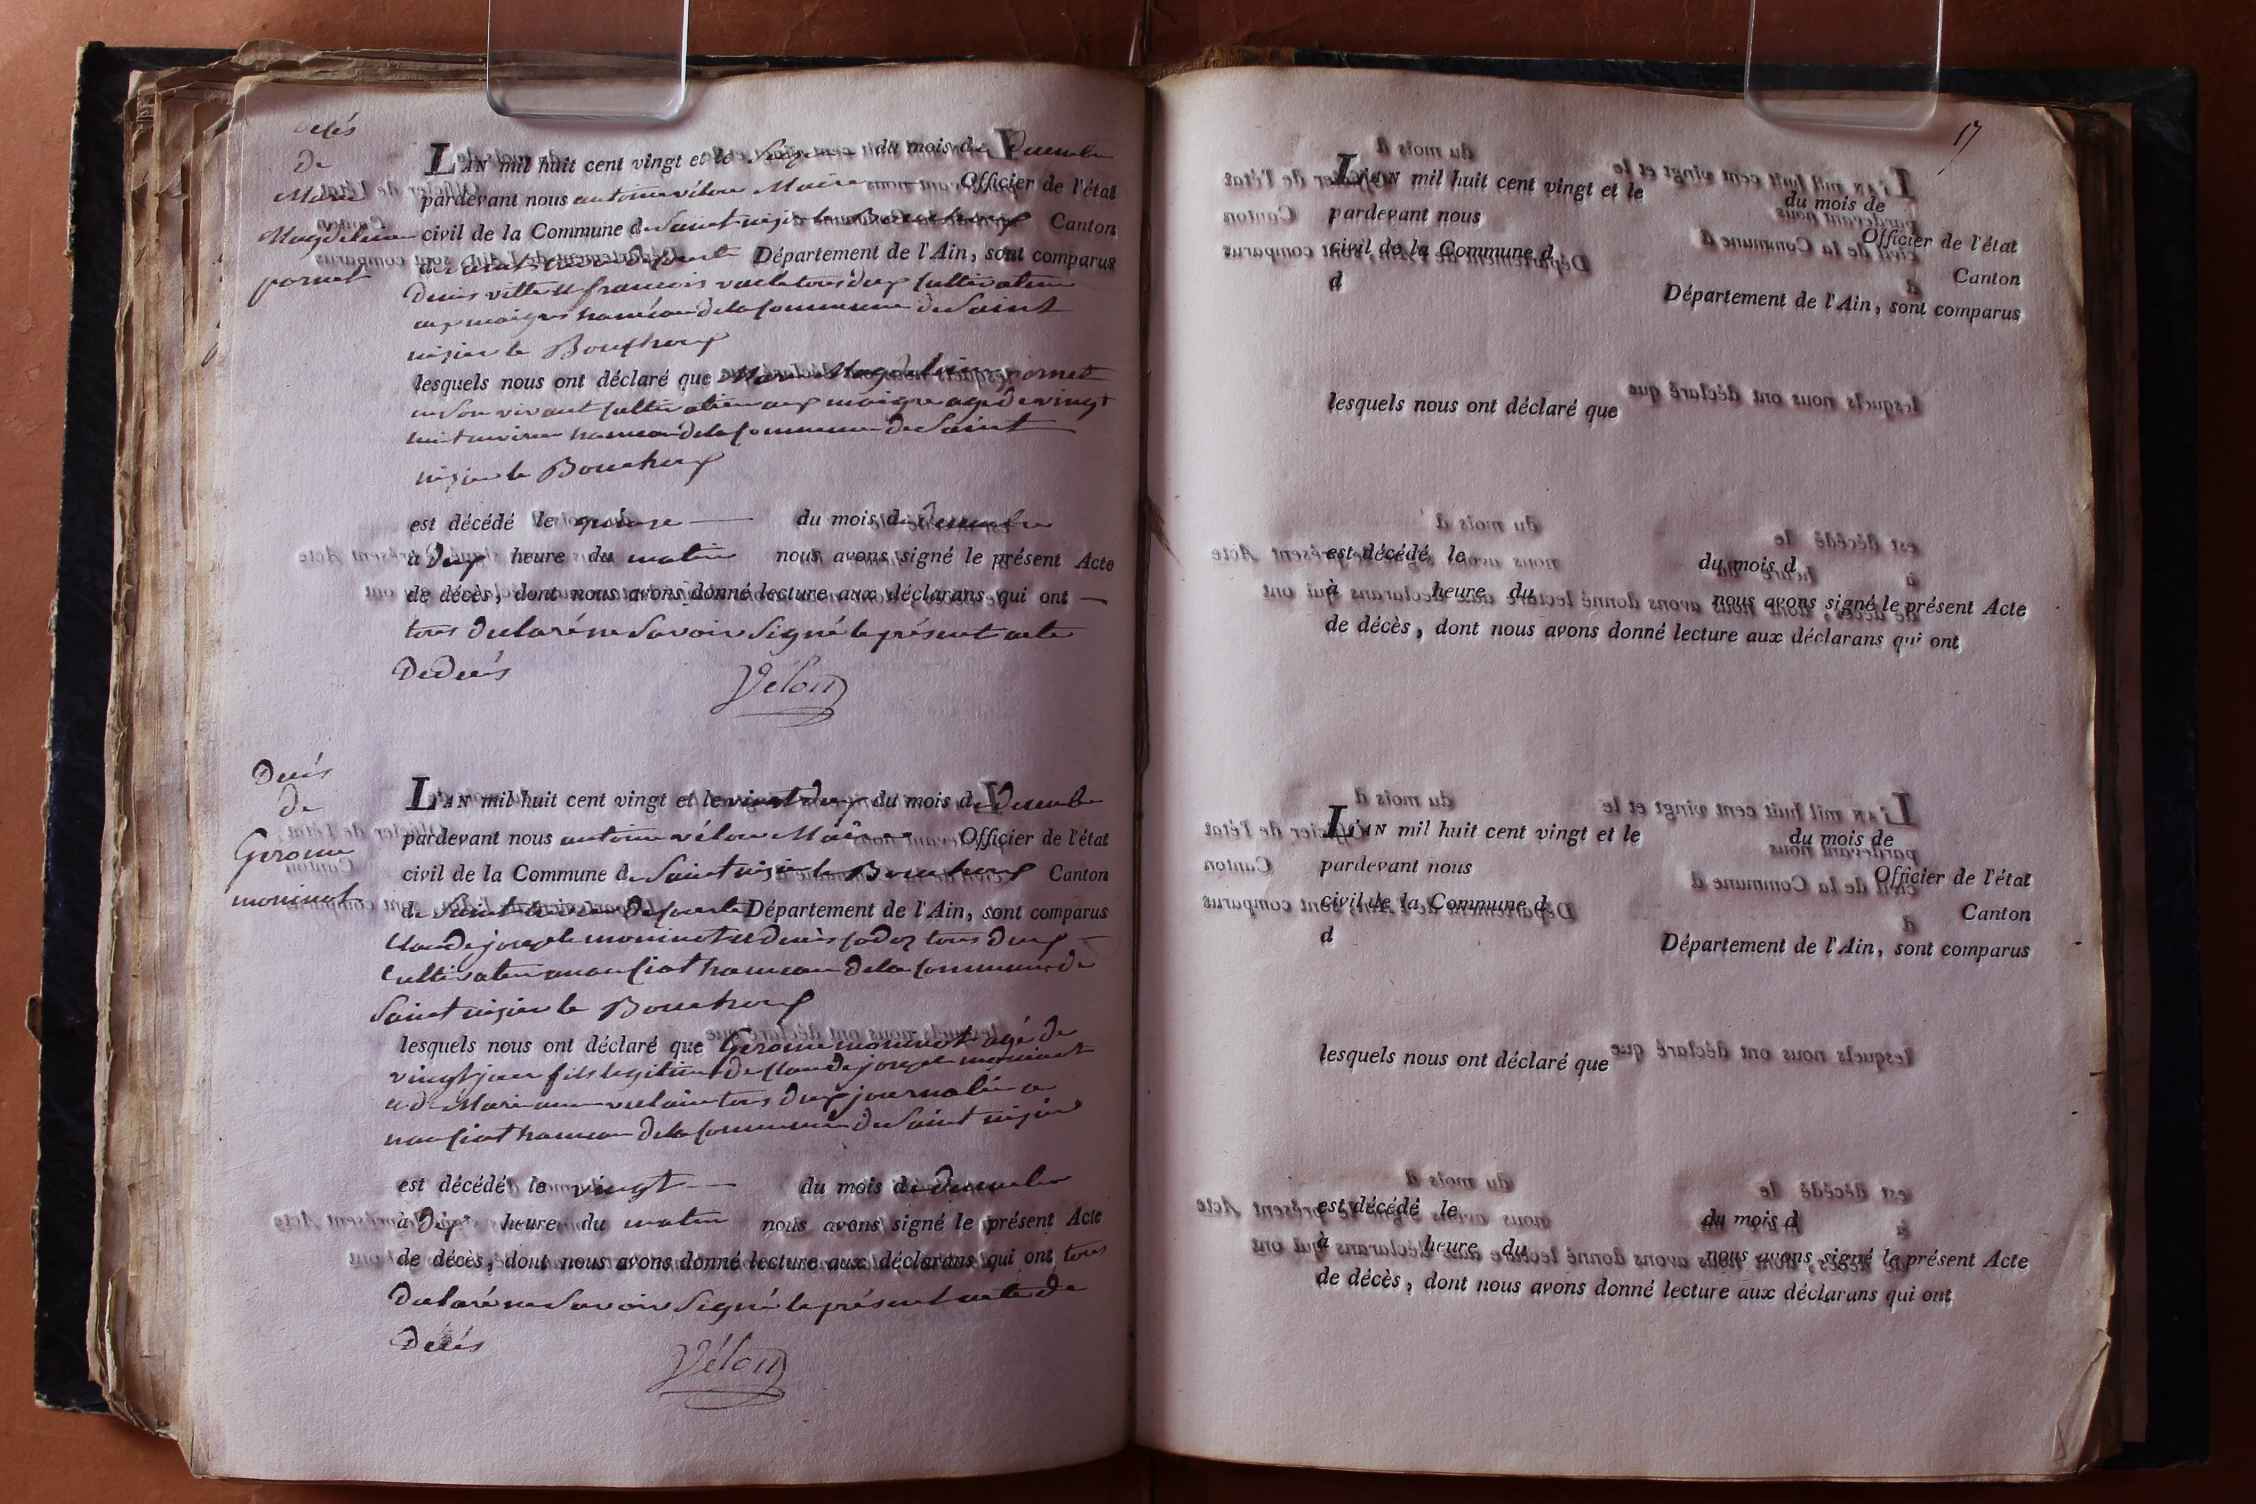 décés
de
Marie
Magdelaine
pornet
L'AN mil huit cent vingt et le Seize du mois de Decembre
pardevant nous antoine vélon Maire Officier de l'état
civil de la Commune de Saint nizier le Bouchoux Canton
de Saint trivier de Courte Département de l'Ain, sont comparus
denis villet et francois vacle tous deux Cultivateur
aux maigres hameau de la Commune de Saint
nizier le Bouchoux
lesquels nous ont déclaré que Marie Magdelaine pornet
en son vivant Cultivatrice aux maigre agé de vingt
huit environ hameau de la Commune de Saint
nizier le Bouchoux
est décédé le quinze du mois de Decembre
à deux heure du matin nous avons signé le présent Acte
de décès, dont nous avons donné lecture aux déclarans qui ont
tous declaré ne Savoir Signé le présent acte
De décés
Vélon
Decés
de
Gerome
moninot
L'AN mil huit cent vingt et le vingt deux du mois de Decembre
pardevant nous antoine vélon Maire Officier de l'état
civil de la Commune de Saint nizier le Bouchoux Canton
de Saint trivier de Courte Département de l'Ain, sont comparus
Claude joseph moninot et denis sodez tous deux
Cultivateur a hameau de la Commune de
Saint nizier le Bouchoux
lesquels nous ont déclaré que Gerome moninot agé de
vingt jour fils legitime de Claude joseph moninot
et de Marie anne tous deux journalié a
hameau de la Commune de Saint nizier
est décédé le vingt du mois de Decembre
à Dix heure du matin nous avons signé le présent Acte
de décès, dont nous avons donné lecture aux déclarans qui ont tous
declaré ne Savoir Signé le présent acte de
Décés
Vélon
17
L'AN mil huit cent vingt et le du mois de
pardevant nous Officier de l'état
civil de la Commune d Canton
d Département de l'Ain, sont comparus
lesquels nous ont déclaré que
est décédé le du mois d
à heure du nous avons signé le présent Acte
de décès, dont nous avons donné lecture aux déclarans qui ont
L'AN mil huit cent vingt et le du mois de
pardevant nous Officier de l'état
civil de la Commune d Canton
d Département de l'Ain, sont comparus
lesquels nous ont déclaré que
est décédé le du mois d
à heure du nous avons signé le présent Acte
de décès, dont nous avons donné lecture aux déclarans qui ont